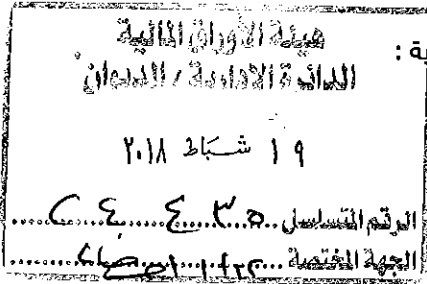 ية :
هيئة الأوراق المالية
الدائرة الادارية / الديوان
١٩ شباط ٢٠١٨
الرقم المتسلسل
الجهة المختصة